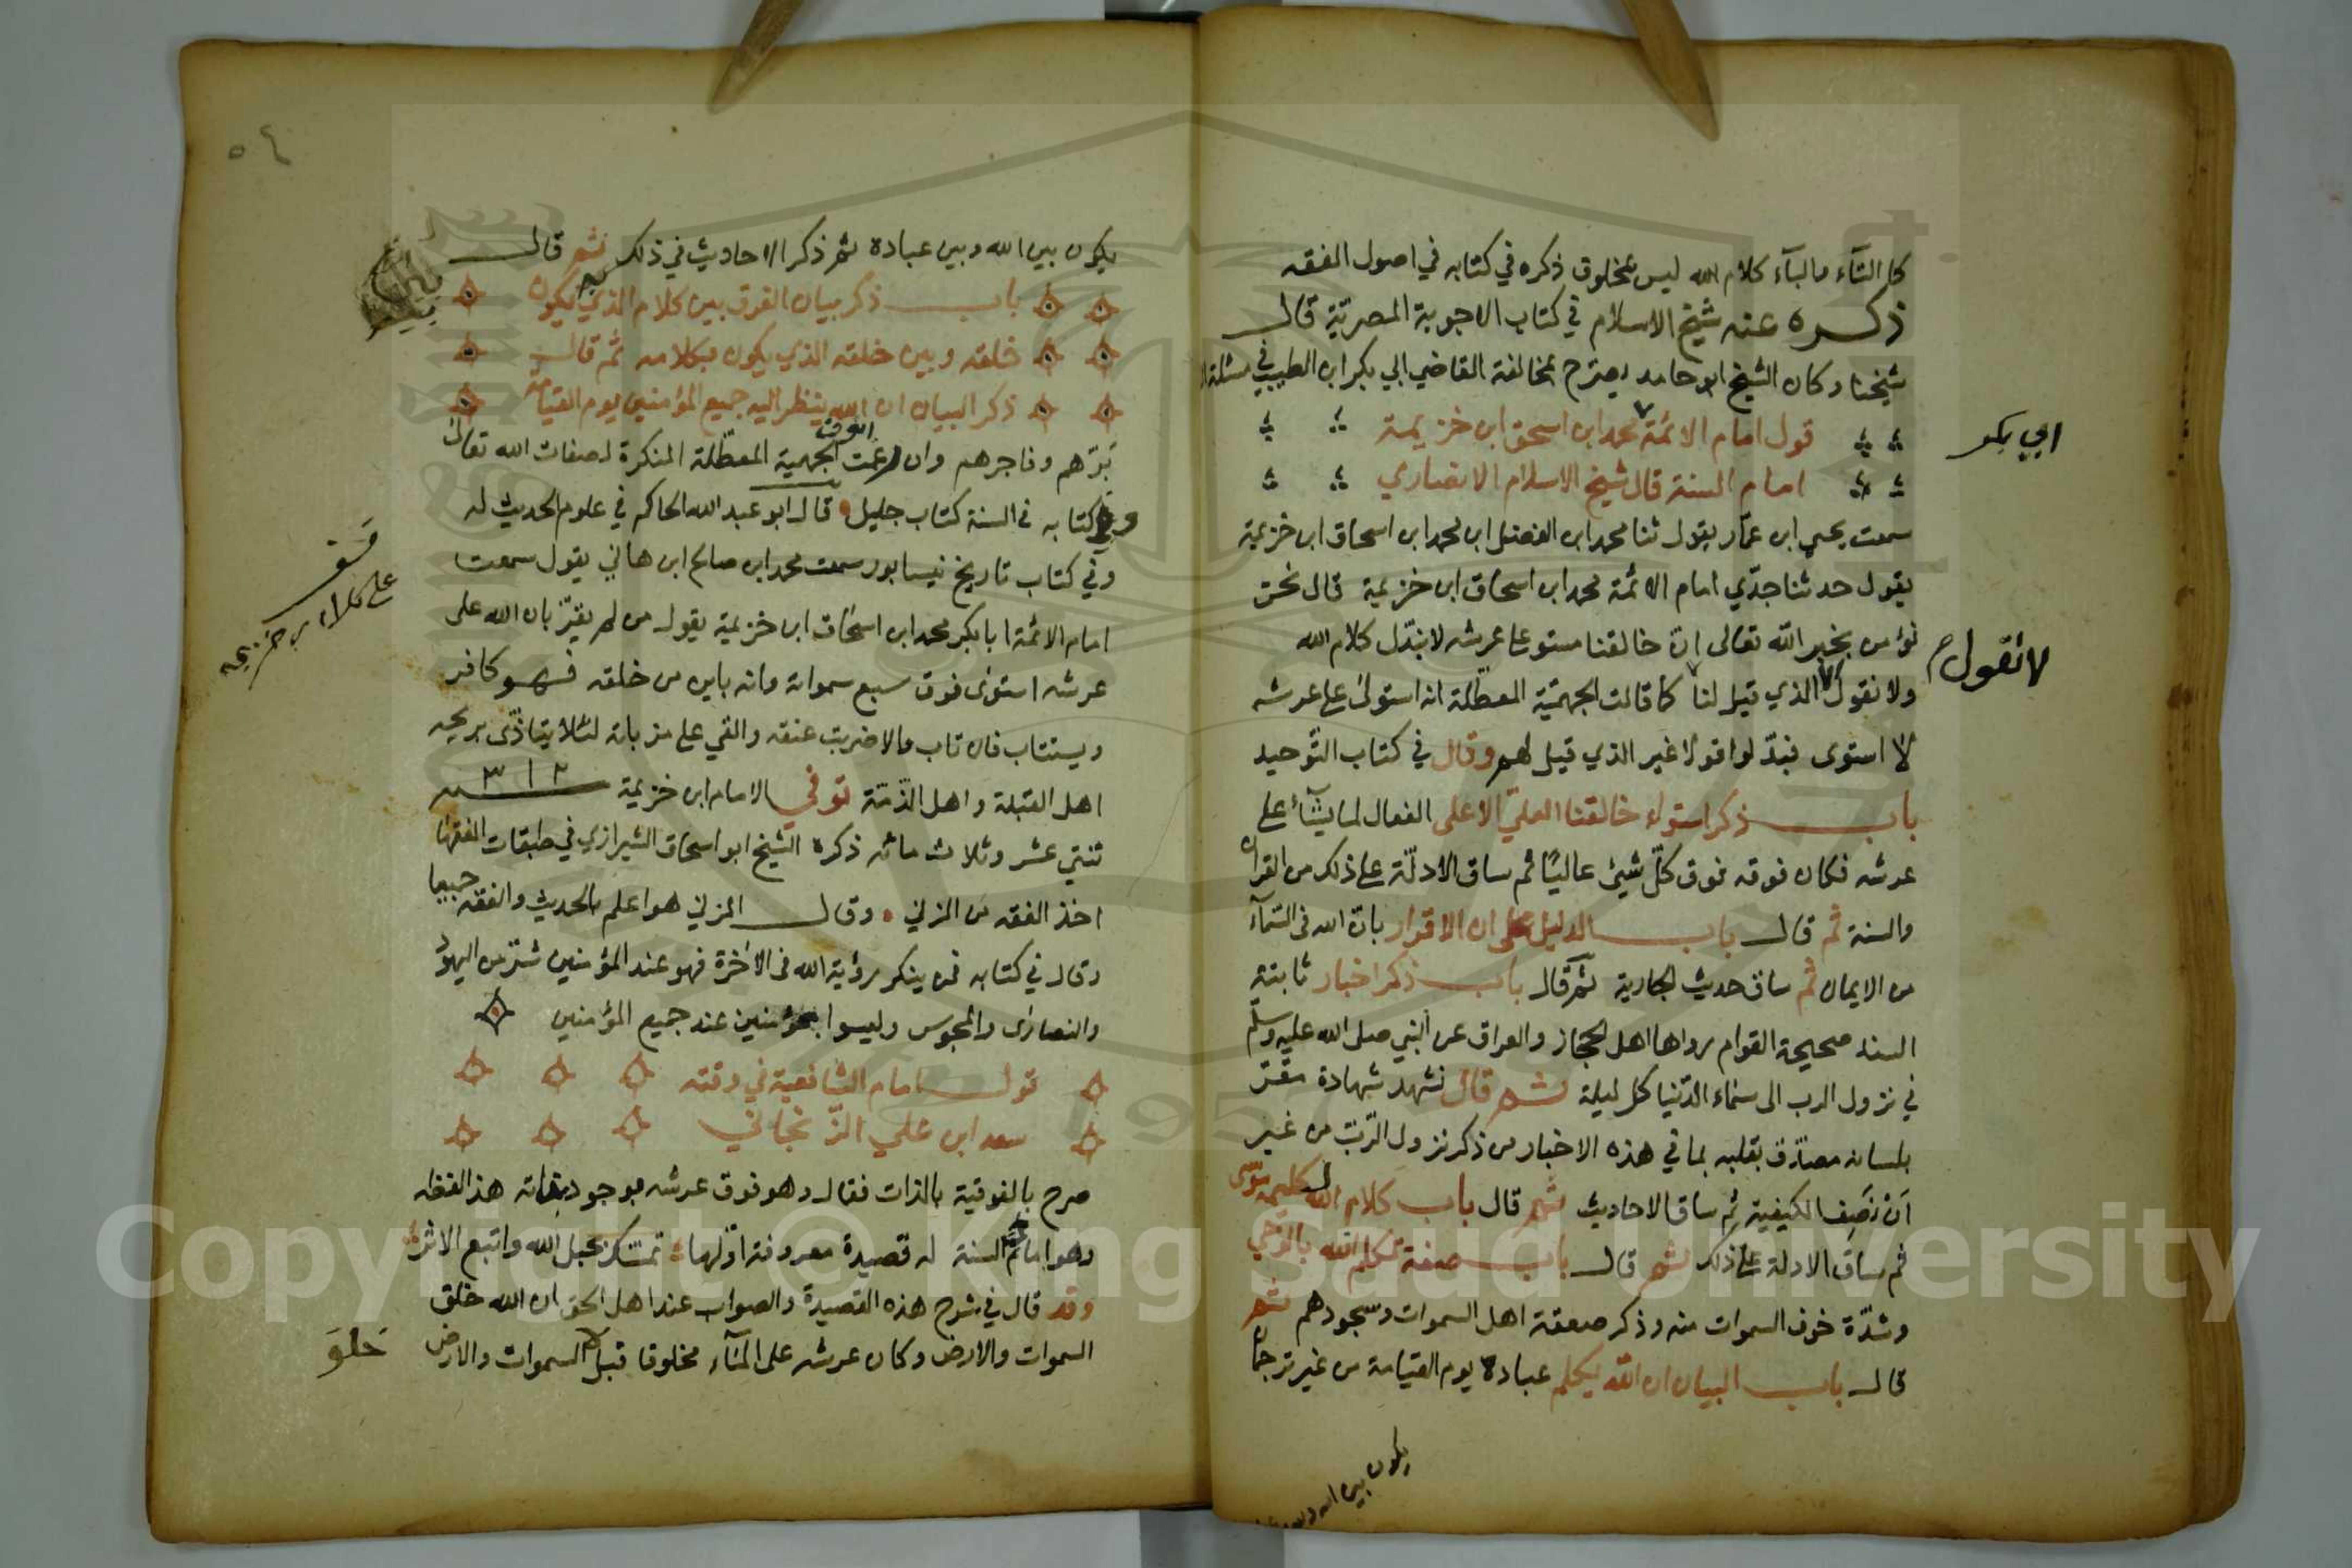 كالتآء والبآء كلام الله ليس بمخلوق ذكره في كتابه في اصول الفقه
ذكره عنه شيخ الاسلام في كتاب الاجوبة المصرية قال
شيخنا وكان الشيخ ابو حامد يصرح بمخالفة القاضي ابي بكر ابن الطيب في مسئلة
قول امام الائمة محمد ابن اسحق ابن خزيمة
ابي بكر
امام السنة قال شيخ الاسلام الانصاري
سمعت يحيى ابن عمّار يقول ثنا محمد ابن الفضل ابن محمد ابن اسحاق ابن خزيمة
يقول حدثنا جدّي امام الائمة محمد ابن اسحاق ابن خزيمة قال نحن
نؤمن بخبر الله تعالى انّ خالقنا مستو على عرشه لا نبدّل كلام الله
ولا نقول الذي قيل لنا كما قالت الجهميّة المعطّلة انه استولى على عرشه
لا نقول
لا استوى فبدّلوا قولا غير الذي قيل لهم وقال في كتاب التّوحيد
باب ذكر استواء خالقنا العليّ الاعلى الفعال لما يشآء على
عرشه فكان فوقه فوق كلّ شيئ عاليًا ثم ساق الادلّة على ذلك من القران
والسنة ثم قال باب الدليل على ان الاقرار بانّ الله فى السّمآء
من الايمان ثم ساق حديث الجارية ثم قال باب ذكر اخبار ثابتة
السند صحيحة القوام رواها اهل الحجاز والعراق عن النبي صلى الله عليه وسلم
في نزول الرب الى سماء الدّنيا كل ليلة ثم قال نشهد شهادة مقرّ
بلسانه مصدّق بقلبه بما في هذه الاخبار من ذكر نزول الرّبّ من غير
اَنْ نَصِف الكيفية ثم ساق الاحاديث ثم قال باب كلام الله لكليمه موسى
ثم ساق الادلة على ذلك ثم قال باب صفة تكلم الله بالوحي
وشدّة خوف السموات منه وذكر صعقة اهل السموات وسجودهم ثم
قال باب البيان ان الله يكلم عباده يوم القيامة من غير ترجمان
يكون بين الله وبين
٥٤
يكون بين الله وبين عباده ثم ذكر الاحاديث في ذلك ثم قال
باب ذكر بيان الفرق بين كلام الذي به يكون
خلقه وبين خلقه الذي يكون بكلامه ثم قال
ذكر البيان ان الله ينظر اليه جميع المؤمنين يوم القيامة
بَرّهم وفاجرهم وان رغمت انوف الجهمية المعطّلة المنكرة لصفات الله تعالى
وكتابه فى السنة كتاب جليل قال ابو عبد الله الحاكم في علوم الحديث له
وفي كتاب تاريخ نيسابور سمعت محمد ابن صالح ابن هاني يقول سمعت
قف
على كلام ابن خزيمه
امام الائمة ابا بكر محمد ابن اسحاق ابن خزيمة يقول من لم يقرّ بان الله على
عرشه استوى فوق سبع سمواته وانه باين من خلقه فهو كافر
ويستتاب فان تاب والا ضربت عنقه والقي على مزبلة لئلا يتاذّى بريحه
اهل القبلة واهل الذّمّة توفي الامام ابن خزيمة سنه ٣١٢
ثنتي عشر وثلاث مائه ذكره الشيخ ابو اسحاق الشيرازي في طبقات الفقها
اخذ الفقه من المزني وقال المزني هو اعلم بالحديث والفقه جميعا
وقال في كتابه فمن ينكر رؤية الله فى الاخرة فهو عند المؤمنين شرّ من اليهود
والنصارى والمجوس وليسوا بمؤمنين عند جميع المؤمنين
قول امام الشافعية في وقته
سعد ابن علي الزّنجاني
صرح بالفوقية بالذات فقال وهو فوق عرشه بوجود ذاته هذا لفظه
وهو امام السنة له قصيدة معروفة اوّلها تمسّك بحبل الله واتبع الاثر
وقد قال في شرح هذه القصيدة والصواب عند اهل الحق ان الله خلق
السموات والارض وكان عرشه على المآء مخلوقا قبل السموات والارض
خلق
Copyright © King Saud University
1957